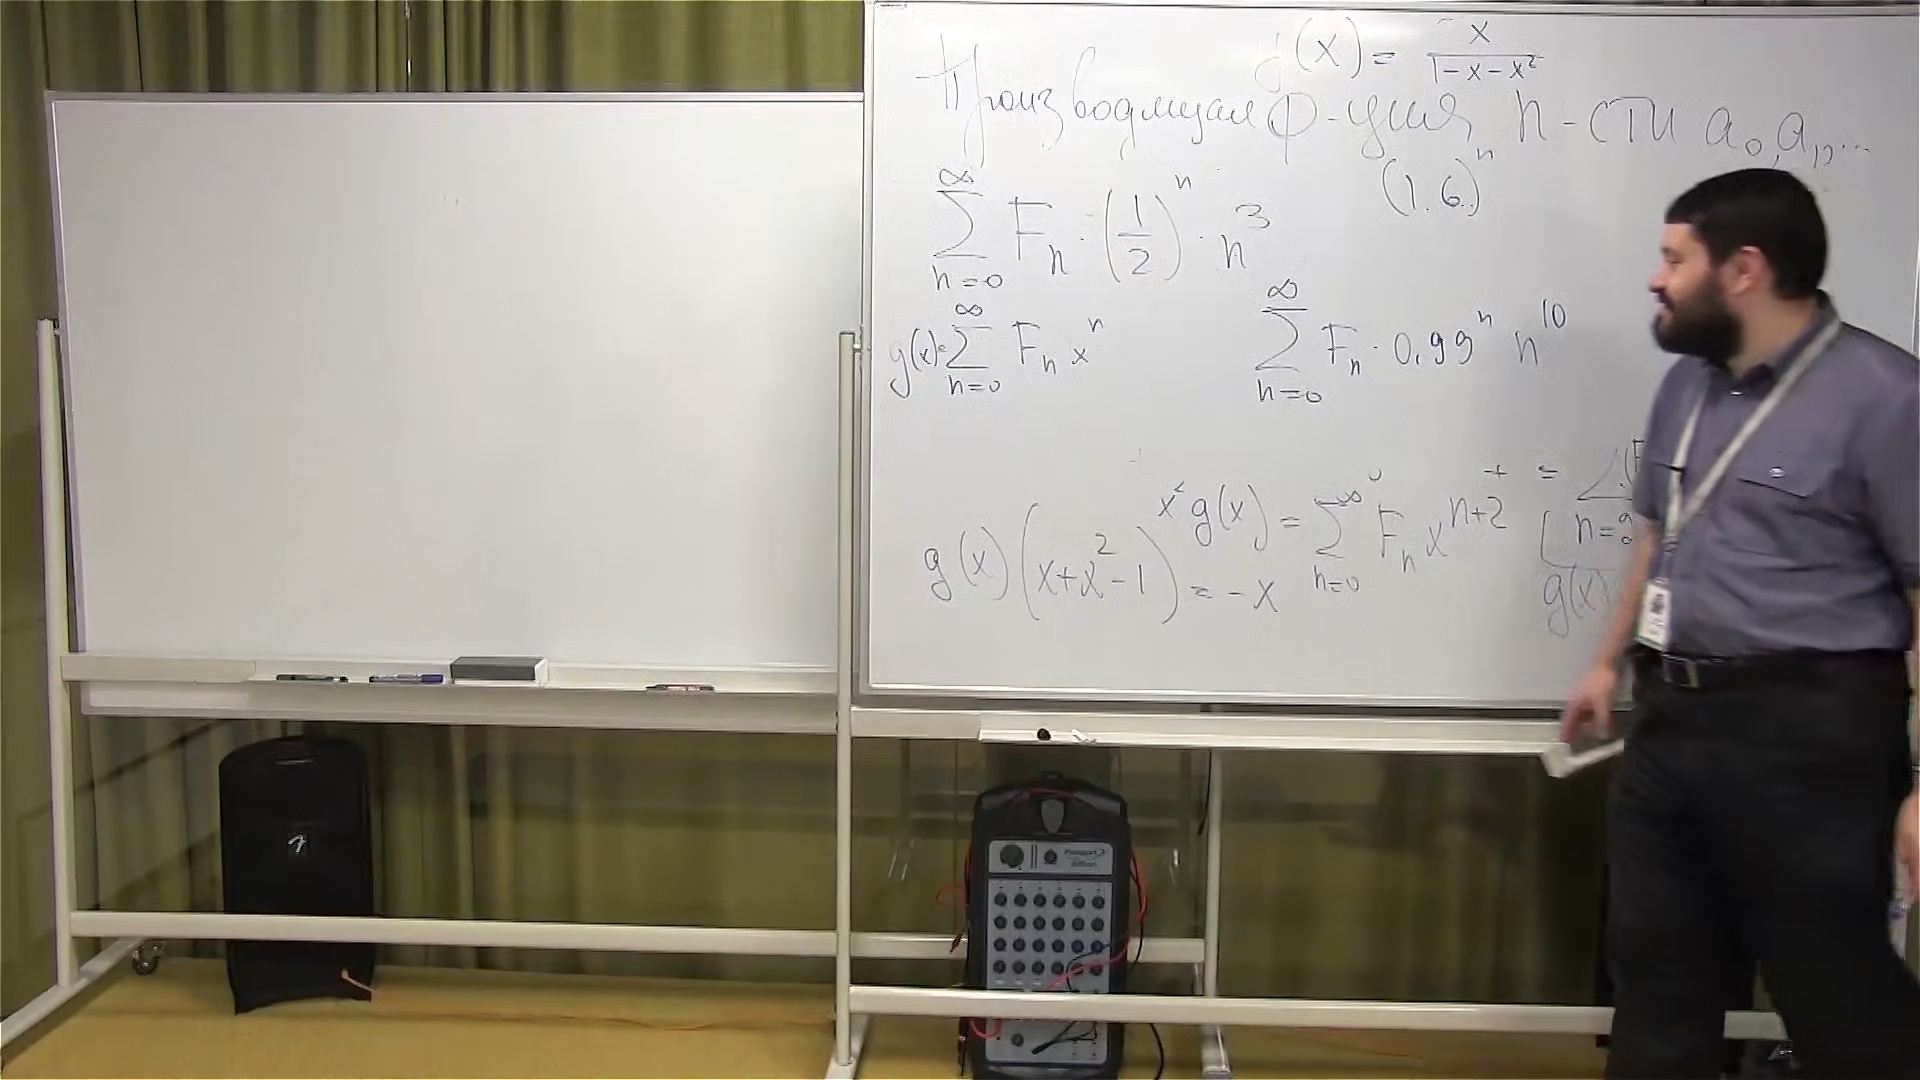 g(x) = x / (1-x-x²)
Производящая ф-ция п-сти a₀, a₁, ...
∑_{n=0}^{∞} Fₙ · (1/2)ⁿ · n³
(1.6..)ⁿ
g(x) = ∑_{n=0}^{∞} Fₙ xⁿ
∑_{n=0}^{∞} Fₙ · 0,99ⁿ n¹⁰
x² g(x) = ∑_{n=0}^{∞} Fₙ x^{n+2}
g(x) (x+x²-1) = -x
g(x)